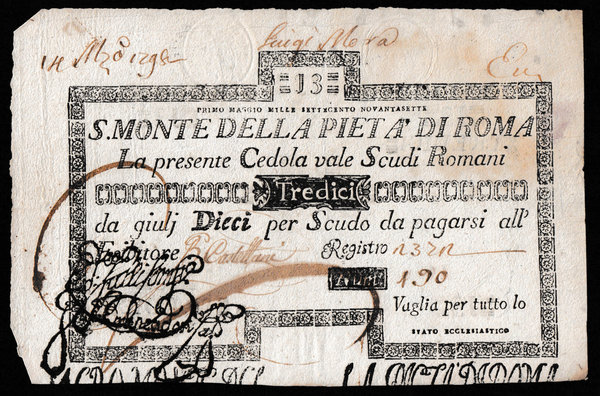 14 Mzo 1798
Luigi Mora
13
PRIMO MAGGIO MILLE SETTECENTO NOVANTASETTE
S. MONTE DELLA PIETA' DI ROMA
La presente Cedola vale Scudi Romani
Tredici
da giulj Dieci per Scudo da pagarsi all'
Esibitore Registro
190
Vaglia per tutto lo
STATO ECCLESIASTICO